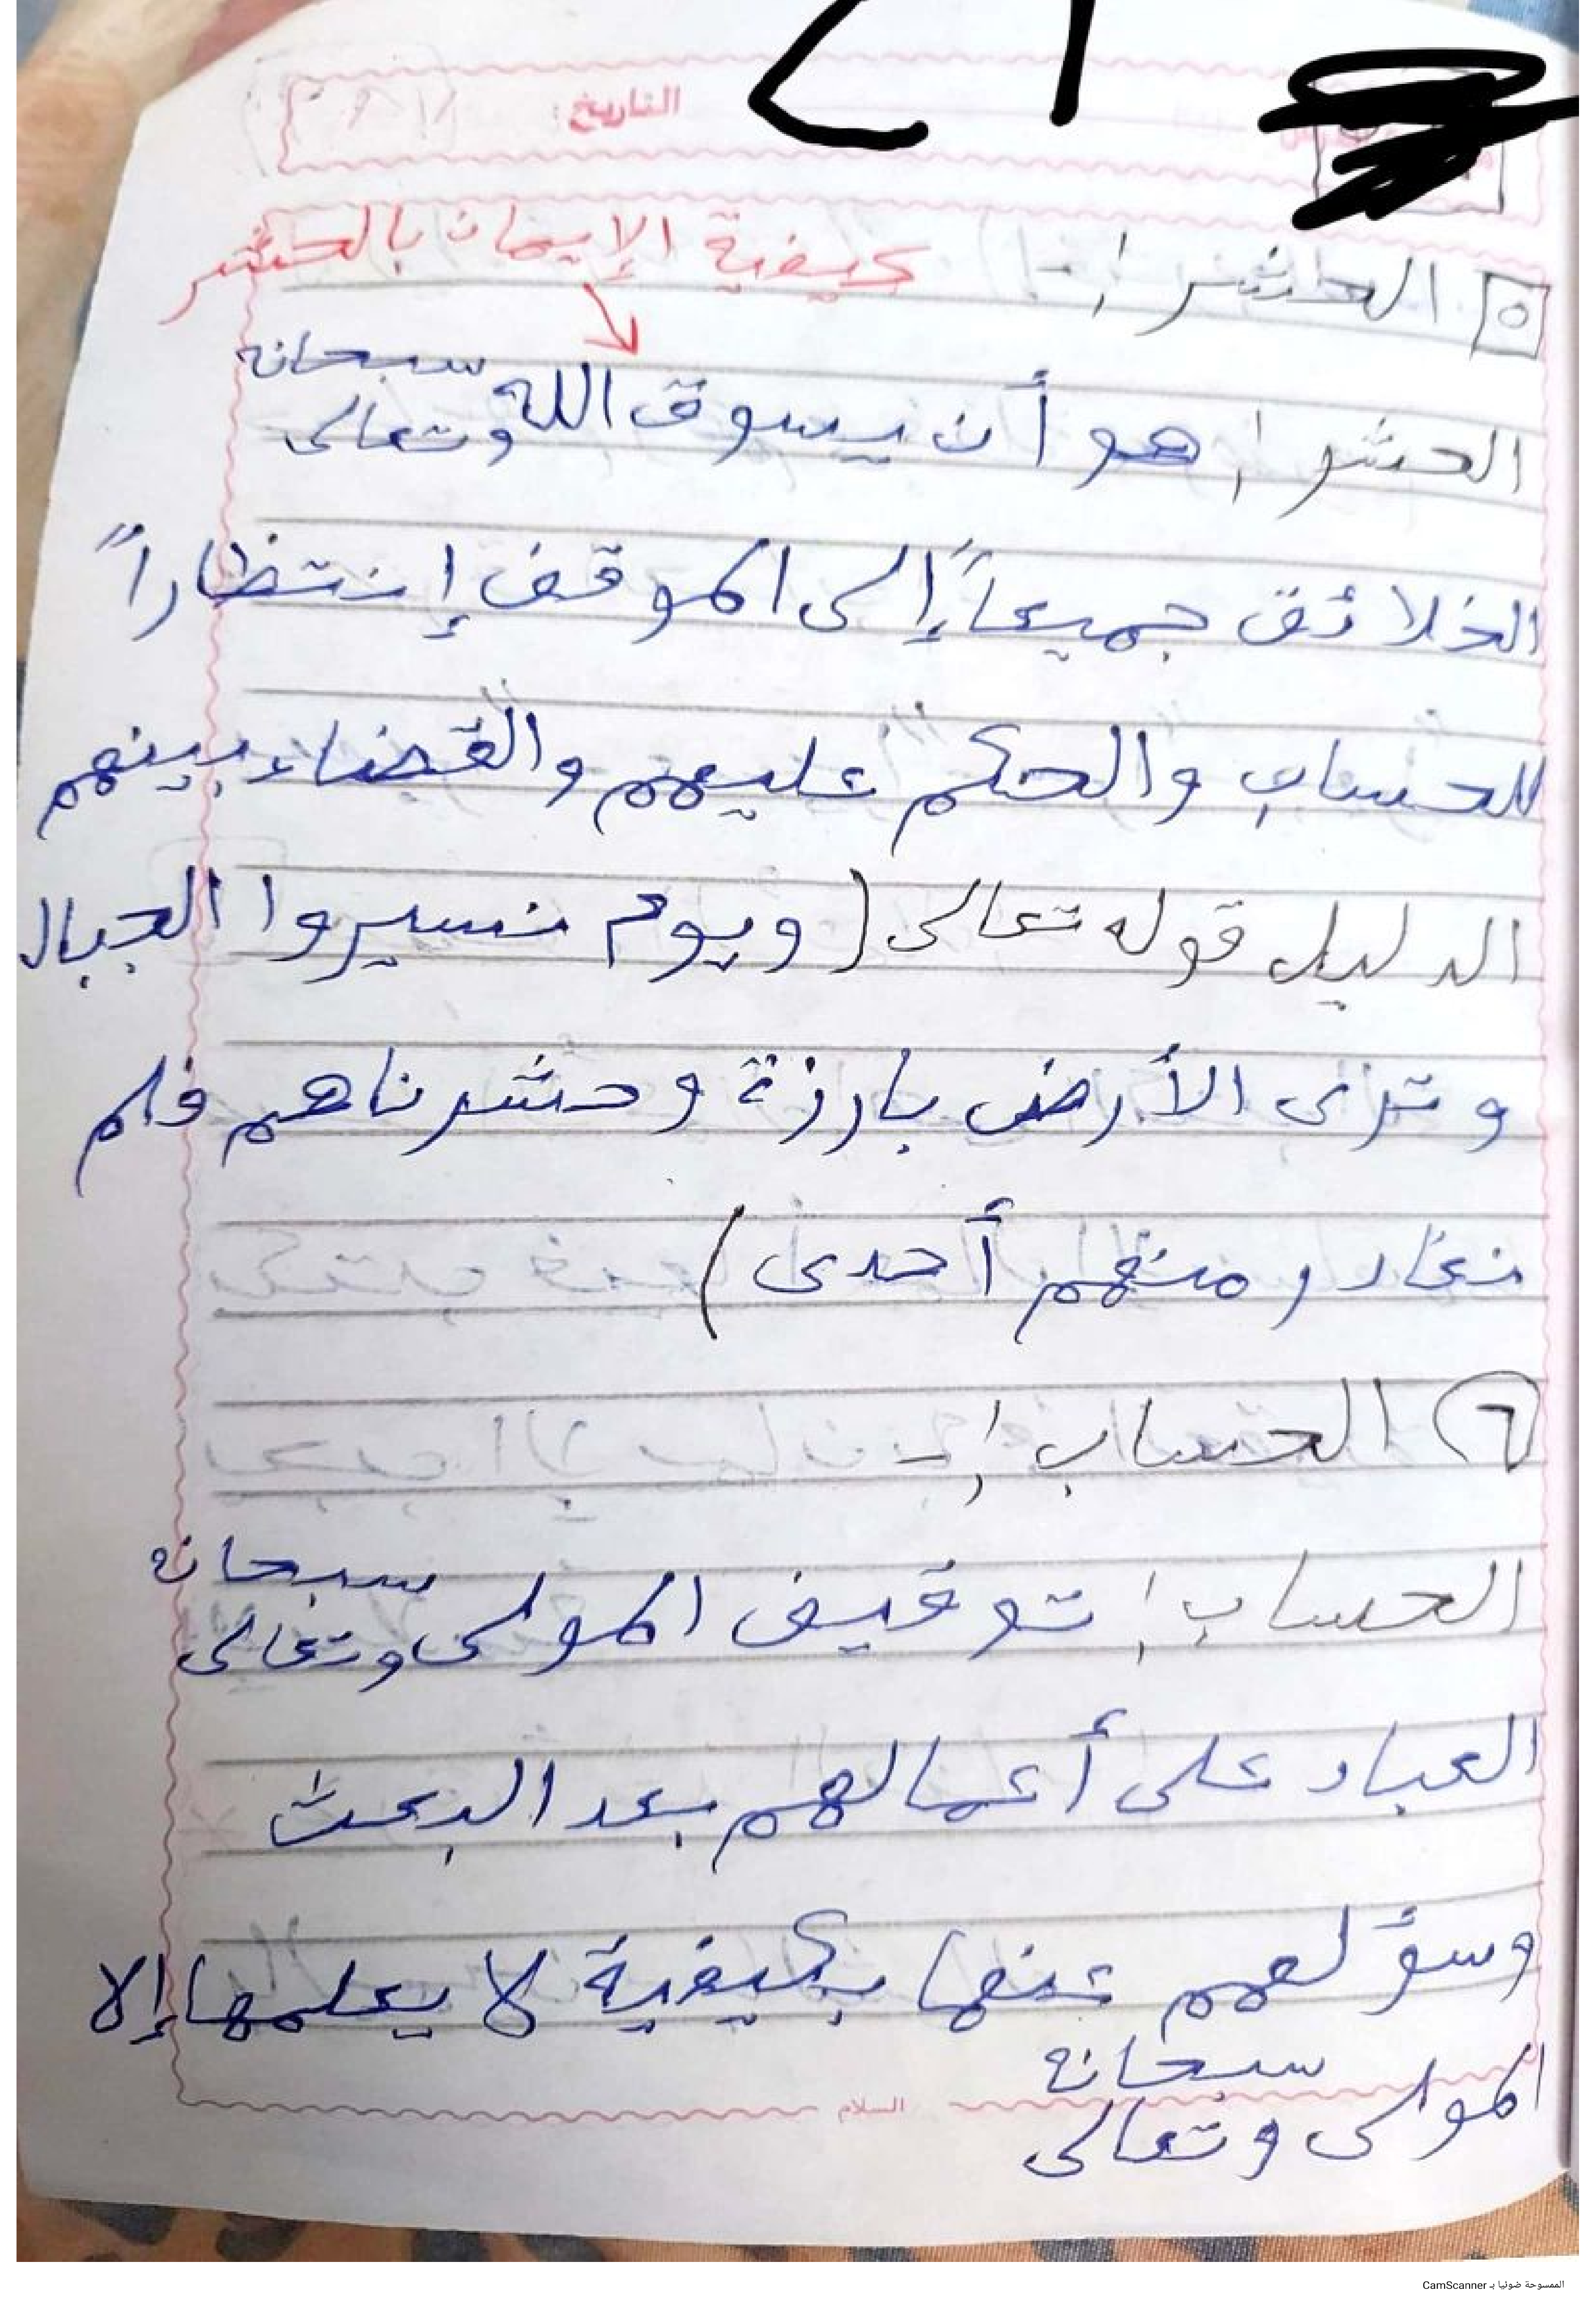 التاريخ:
٥ الحشر :- كيفية الإيمان بالحشر
الحشر : هو أن يسوق الله سبحانه وتعالى
الخلائق جميعاً إلى الموقف إنتظاراً
للحساب والحكم عليهم والقضاء بينهم
الدليل قوله تعالى ( ويوم نسيروا الجبال
وترى الأرض بارزة وحشرناهم فلم
نغادر منهم أحدى )
٦ الحساب :-
الحساب : توقيف المولى سبحانه وتعالى
العباد على أعمالهم بعد البعث
وسؤلهم عنها بكيفية لا يعلمها إلا
المولى سبحانه وتعالى
السلام
الممسوحة ضوئيا بـ CamScanner